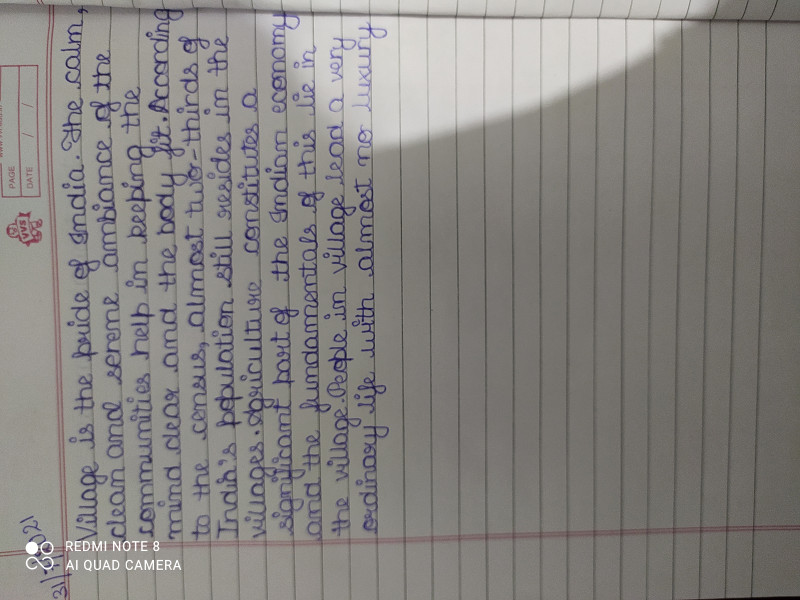 PAGE
DATE / /
VVS
Village is the pride of India. The calm,
clean and serene ambiance of the
communities help in keeping the
mind clear and the body fit. According
to the census, almost two-thirds of
India's population still resides in the
villages. Agriculture constitutes a
significant part of the Indian economy
and the fundamentals of this lie in
the village. People in village lead a very
ordinary life with almost no luxury
REDMI NOTE 8
AI QUAD CAMERA